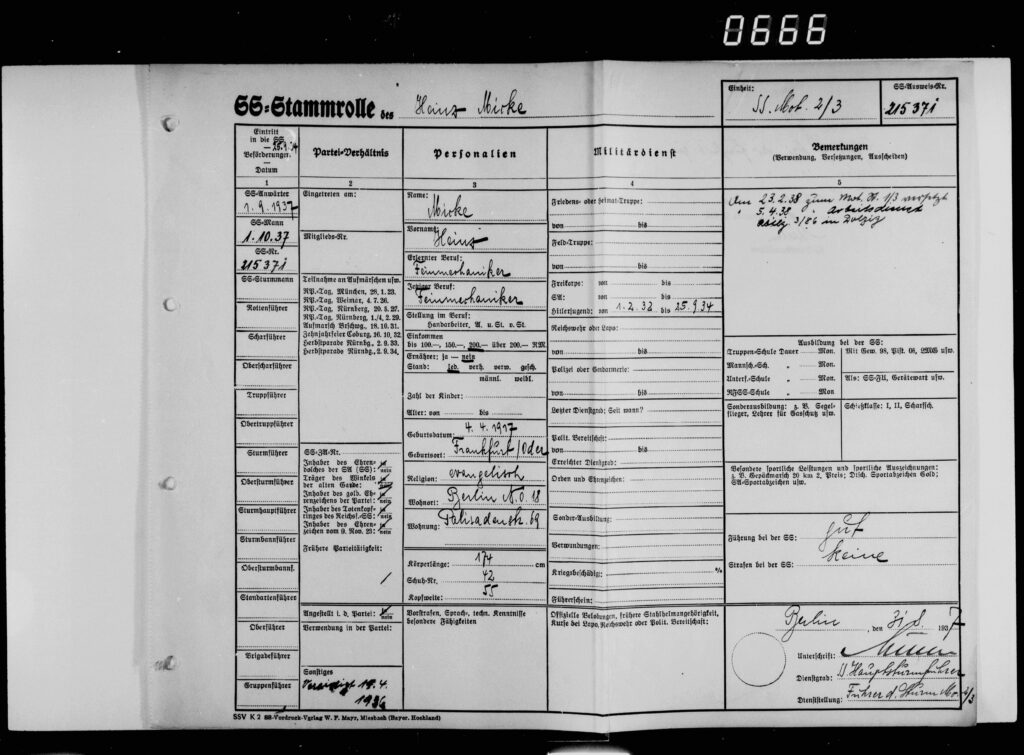 0666
SS-Stammrolle des Heinz Mirke
Einheit: SS. Mot. 2/3
SS-Ausweis-Nr. 215371
Eintritt in die SS 25.9.34
Beförderungen
Datum
Partei-Verhältnis
Personalien
Militärdienst
Bemerkungen
(Verwendung, Versetzungen, Ausscheiden)
1
2
3
4
5
SS-Anwärter
1.9.1937
SS-Mann
1.10.37
SS-Nr.
215371
SS-Sturmmann
Rottenführer
Scharführer
Oberscharführer
Truppführer
Obertruppführer
Sturmführer
Obersturmführer
Sturmhauptführer
Sturmbannführer
Obersturmbannf.
Standartenführer
Oberführer
Brigadeführer
Gruppenführer
Eingetreten am:
Mitglieds-Nr.
Teilnahme an Aufmärschen usw.
RP.-Tag, München, 28.1.23.
RP.-Tag, Weimar, 4.7.26.
RP.-Tag, Nürnberg, 20.8.27.
RP.-Tag, Nürnberg, 1./4.2.29.
Aufmarsch Brschwg., 18.10.31.
Zehnjahrfeier Coburg, 16.10.32
Herbstparade Nürnbg., 2.9.33.
Herbstparade Nürnbg., 2.9.34.
SS-ZA-Nr.
Inhaber des Ehren-
dolches der SA (SS): ja nein
Träger des Winkels
der alten Garde: ja nein
Inhaber des gold. Eh-
renzeichens der Partei: ja nein
Inhaber des Totenkopf-
ringes des Reichsf.-SS: ja nein
Inhaber des Ehren-
zeichen vom 9. Nov. 23: ja nein
Frühere Parteitätigkeit:
/
Angestellt i. d. Partei: ja nein
Verwendung in der Partei:
Sonstiges
Vereidigt 19.4.
1936
Name:
Mirke
Vorname:
Heinz
Erlernter Beruf:
Feinmechaniker
Jetziger Beruf:
Feinmechaniker
Stellung im Beruf:
Handarbeiter, A. u. St. v. St.
Einkommen
bis 100.—, 150.—, 200.— über 200.— R.M.
Ernährer: ja — nein
Stand: led. verh. verw. gesch.
männl. weibl.
Zahl der Kinder:
Alter: von bis
Geburtsdatum: 4.4.1917
Geburtsort: Frankfurt/Oder
Religion: evangelisch
Wohnort: Berlin N.O. 18
Wohnung: Palisadenstr. 69
Körperlänge: 174 cm
Schuh-Nr. 42
Kopfweite: 55
Vorstrafen, Sprach-, techn. Kenntnisse
besondere Fähigkeiten
Friedens- oder Heimat-Truppe:
von bis
Feld-Truppe:
von bis
Freikorps: von bis
SA: von bis
Hitlerjugend: von 1.2.32 bis 25.9.34
Reichswehr oder Lapo:
von bis
Polizei oder Gendarmerie:
von bis
Letzter Dienstgrad: Seit wann?
Polit. Bereitschaft:
von bis
Erreichter Dienstgrad:
Orden und Ehrenzeichen:
Sonder-Ausbildung:
Verwundungen:
Kriegsbeschädig.: %
Führerschein:
Offizielle Belobungen, frühere Stahlhelmangehörigkeit,
Kurse bei Lapo, Reichswehr oder Polit. Bereitschaft:
Am 23.2.38 zum Mot. St. 1/3 versetzt
" 5.4.38 " Arbeitsdienst
3/86 in
Ausbildung bei der SS:
Truppen-Schule Dauer Mon.
Mannsch.-Sch. " Mon.
Unterf.-Schule " Mon.
RFSS-Schule " Mon
Mit Gew. 98, Pist. 08, 2MG usw.
Als: SS-FU, Gerätewart usw.
Sonderausbildung: z. B. Segel-
flieger, Lehrer für Gasschutz usw.
Schießklasse: I, II, Scharfsch.
Besondere sportliche Leistungen und sportliche Auszeichnungen:
z. B. Gepäckmarsch 20 km 2. Preis; Dtsch. Sportabzeichen Gold;
SA-Sportabzeichen usw.
Führung bei der SS: gut
Strafen bei der SS: keine
Berlin, den 31.8. 1937
Unterschrift:
Dienstgrad: SS Hauptsturmführer
Dienststellung: Führer d. Sturm Mot. 2/3
SSV K 2 SS-Vordruck-Verlag W. F. Mayr, Miesbach (Bayer. Hochland)